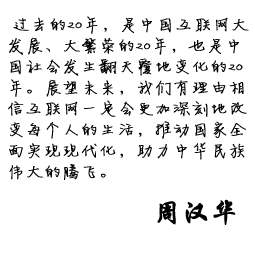 过去的20年，是中国互联网大
发展、大繁荣的20年，也是中
国社会发生翻天覆地变化的20
年。展望未来，我们有理由相
信互联网一定会更加深刻地改
变每个人的生活，推动国家全
面实现现代化，助力中华民族
伟大的腾飞。
周汉华